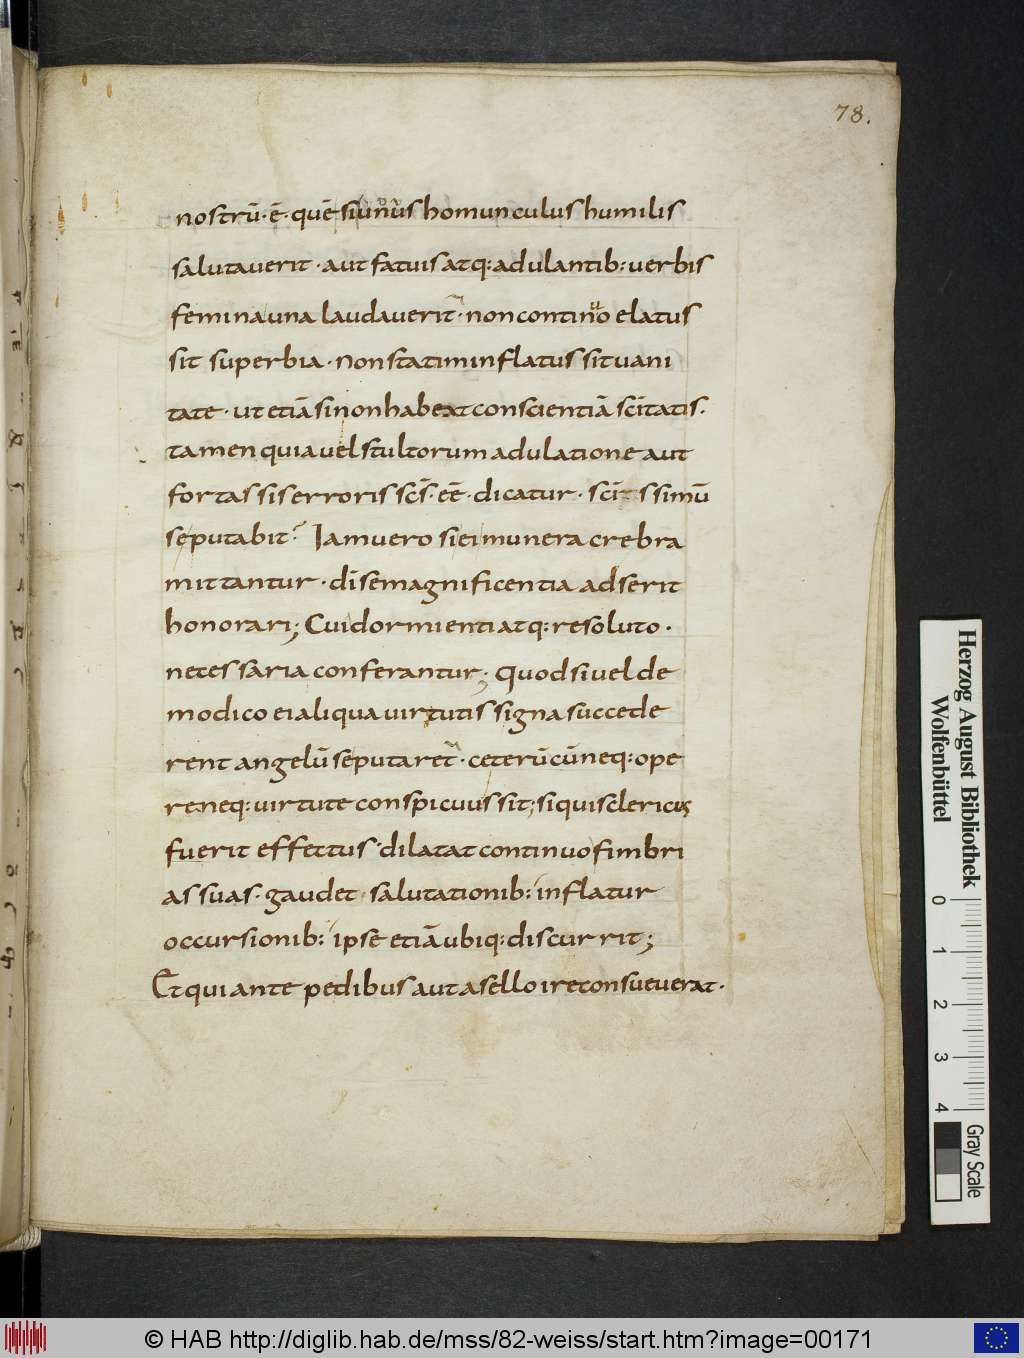 78.
nostrū · ē · quē si unus homunculus humilis
salutaverit · aut fatuis atq: adulantib: verbis
femina una laudaverit · non continuo elatus
sit superbia · non statim inflatus sit vani
tate · ut etiā si non habeat conscientiā scītatis.
tamen quia vel stultorum adulatione aut
fortassis erroris scs̄ · eē · dicatur · scītissimū
se putabit? Iam vero si ei munera crebra
mittantur · dī se magnificentia adserit
honorari; Cui dormienti atq: resoluto ·
necessaria conferantur; Quod si vel de
modico ei aliqua virtutis signa succede
rent angelū se putaret · ceterū cū neq: ope
re neq: virtute conspicuus sit; si quis clericus
fuerit effectus · dilatat continuo fimbri
as suas · gaudet · salutationib: inflatur
occursionib: ipse etiā ubiq: discurrit;
Et qui ante pedibus aut asello ire consueverat ·
Herzog August Bibliothek
Wolfenbüttel
0 1 2 3 4
Gray Scale
© HAB http://diglib.hab.de/mss/82-weiss/start.htm?image=00171